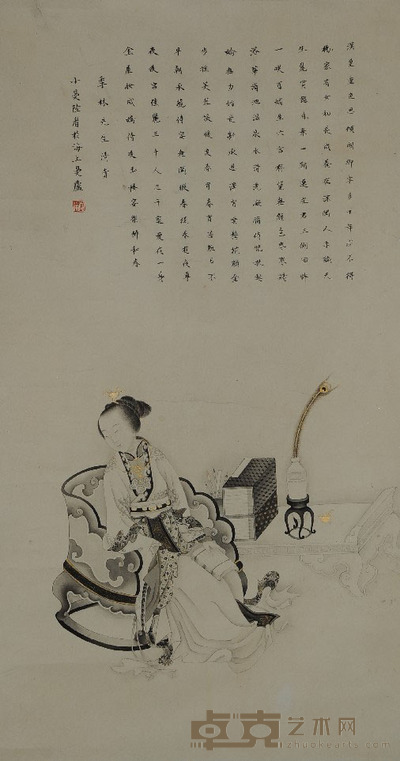 漢皇重色思傾國御宇多年求不得
楊家有女初長成養在深閨人未識天
生麗質難自棄一朝選在君王側回眸
一笑百媚生六宮粉黛無顏色春寒賜
浴華清池溫泉水滑洗凝脂侍兒扶起
嬌無力始是新承恩澤時雲鬢花顏金
步搖芙蓉帳暖度春宵春宵苦短
早朝承歡侍宴無閒暇春從春遊夜專
夜後宮佳麗三千人三千寵愛在一身
金屋妝成嬌侍夜玉樓宴罷醉和春
先生清賞
小曼陸眉於海上曼廬
卓克艺术网
zhuokearts.com